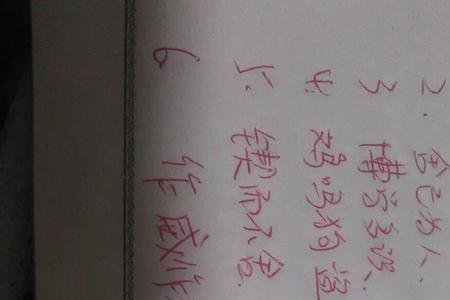 2. 舍己为人.
3 博学多识.
4: 鸡鸣狗盗
5. 锲而不舍.
6 作威作